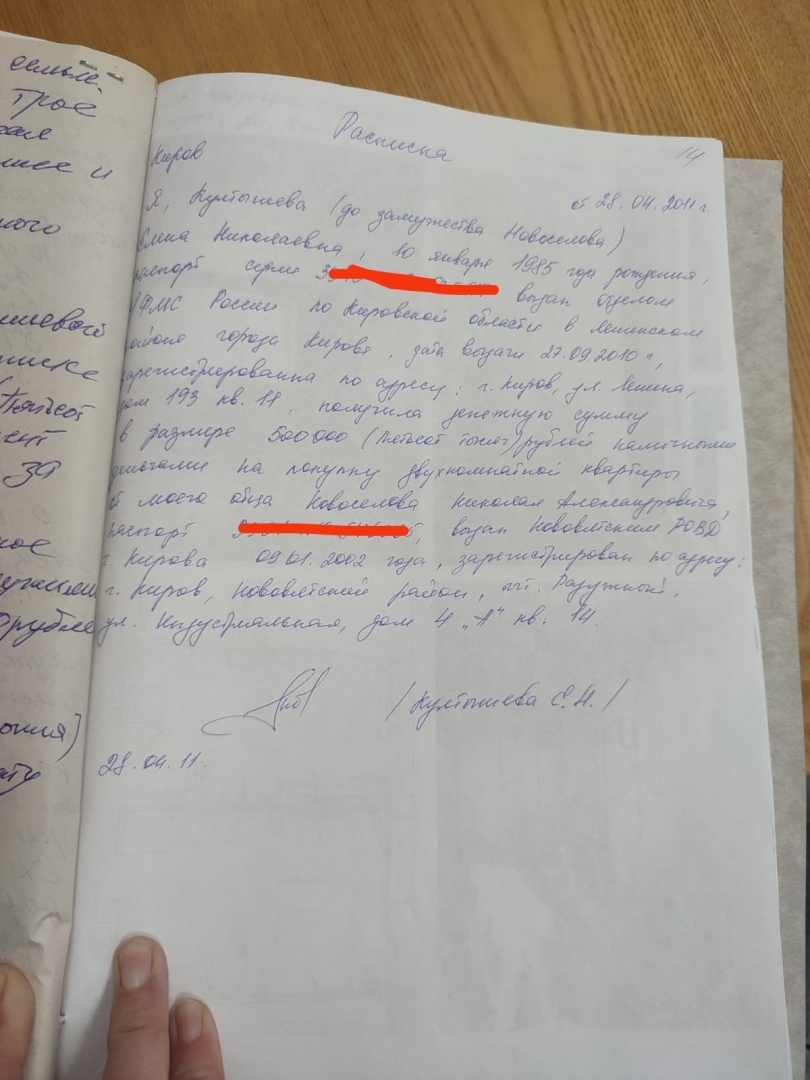 семье.
трое
Расписка
14
Киров
от 28.04.2011 г.
Я, Култышева (до замужества Новоселова)
Елена Николаевна, 10 января 1985 года рождения,
паспорт серии выдан отделом
УФМС России по Кировской области в Ленинском
районе города Кирова, дата выдачи 27.09.2010 г,
зарегистрированна по адресу: г. Киров, ул. Ленина,
дом 193 кв. 11, получила денежную сумму
в размере 500000 (Пятьсот тысяч) рублей наличными
деньгами на покупку двухкомнатной квартиры
от моего отца Новоселова Николая Александровича,
паспорт выдан Нововятским РОВД
г. Кирова 09.01.2002 года, зарегистрирован по адресу:
г. Киров, Нововятский район, пгт. Радужный,
ул. Индустриальная, дом 4 „А" кв. 14.
/Култышева Е.Н./
28.04.11.